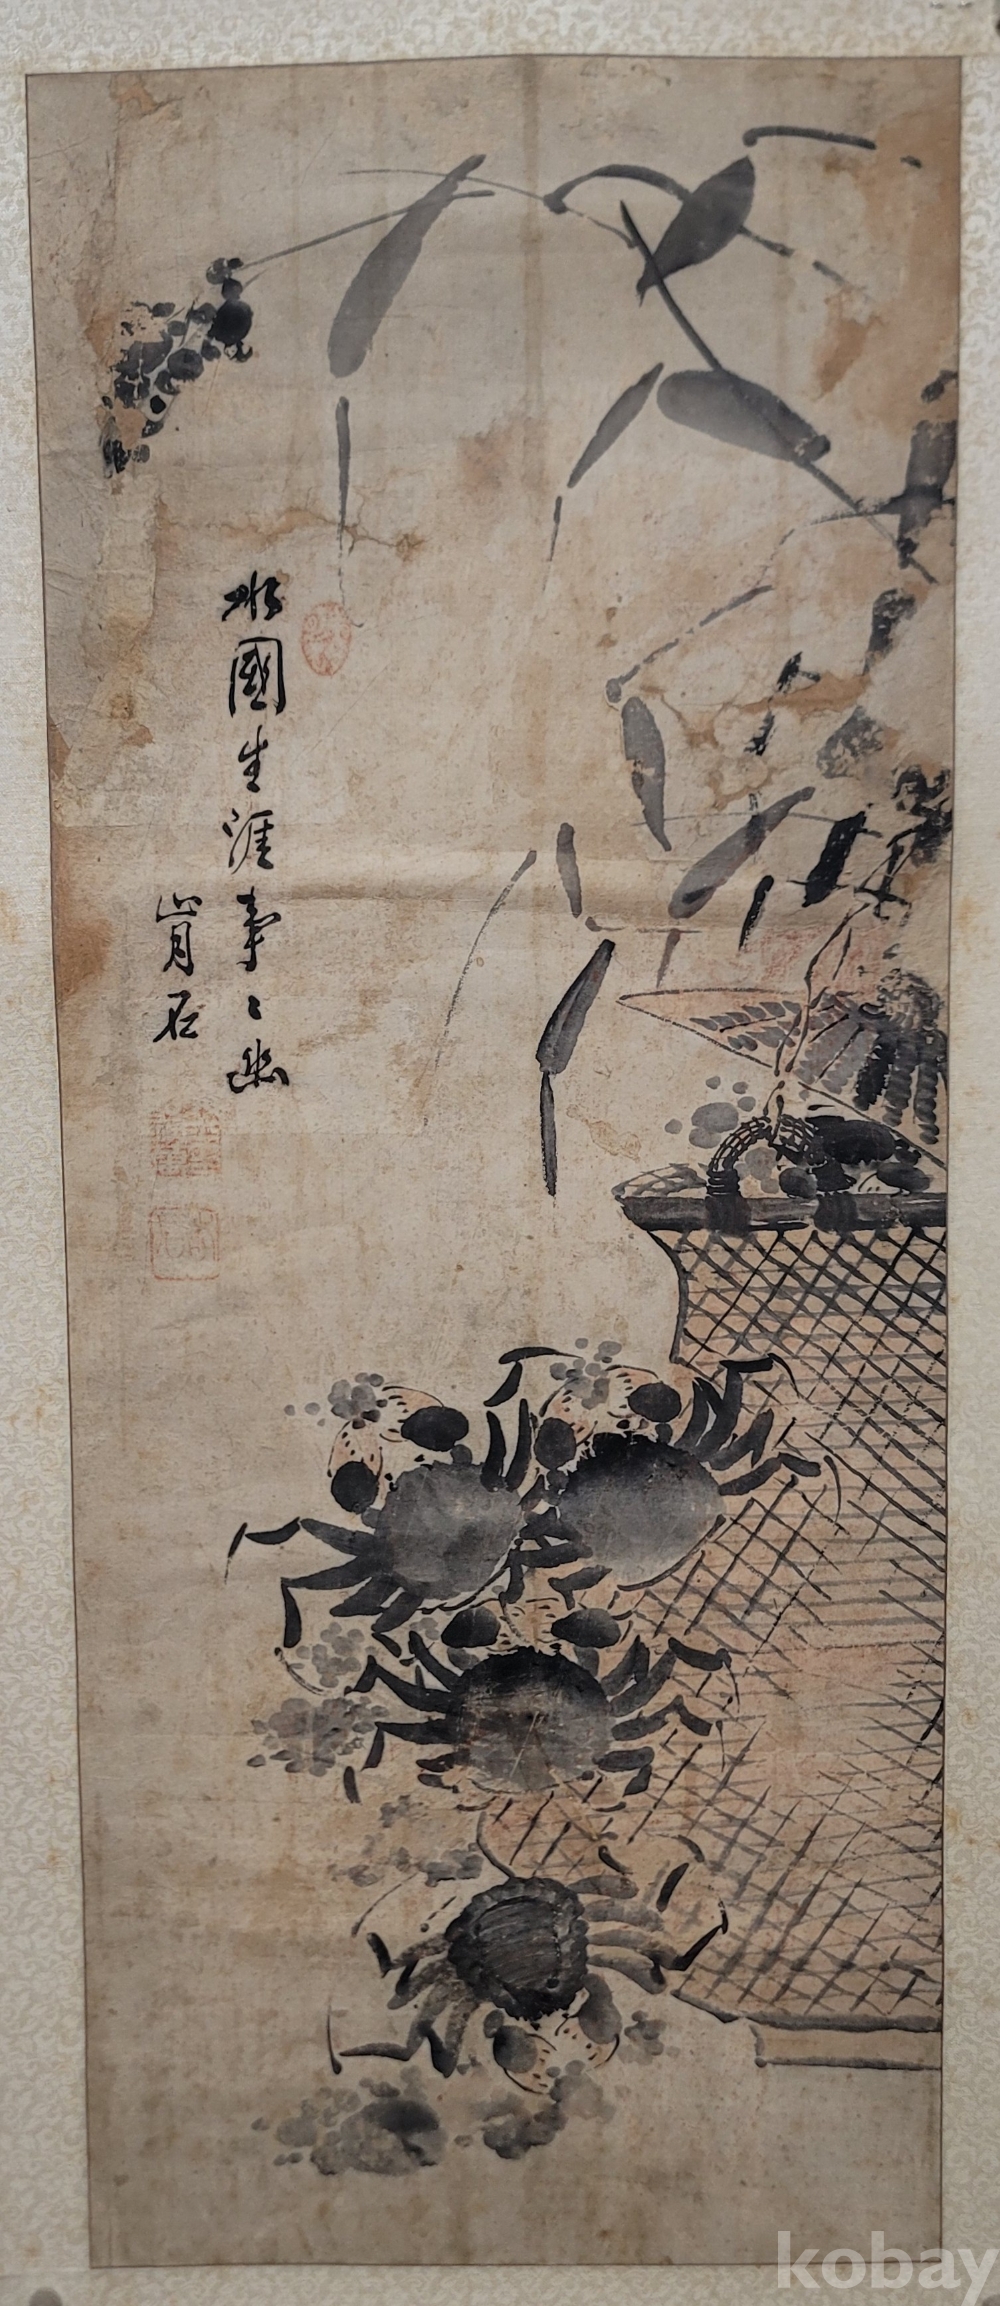 水國生涯事〻幽
肯石
kobay